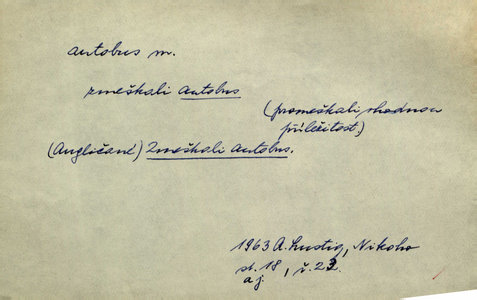 autobus m.
zmeškali autobus
(promeškali vhodnou
příležitost.)
(Angličané) Zmeškali autobus.
1963 A. Lustig, Nikoho
st. 18, ř. 23.
aj.